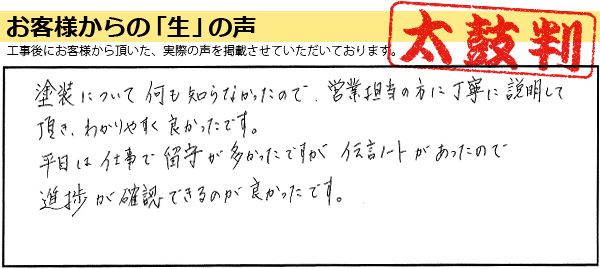 お客様からの「生」の声
太鼓判
工事後にお客様から頂いた、実際の声を掲載させていただいております。
塗装について何も知らなかったので、営業担当の方に丁寧に説明して
頂き、わかりやすく良かったです。
平日は仕事で留守が多かったですが伝言ノートがあったので
進捗が確認できるのが良かったです。